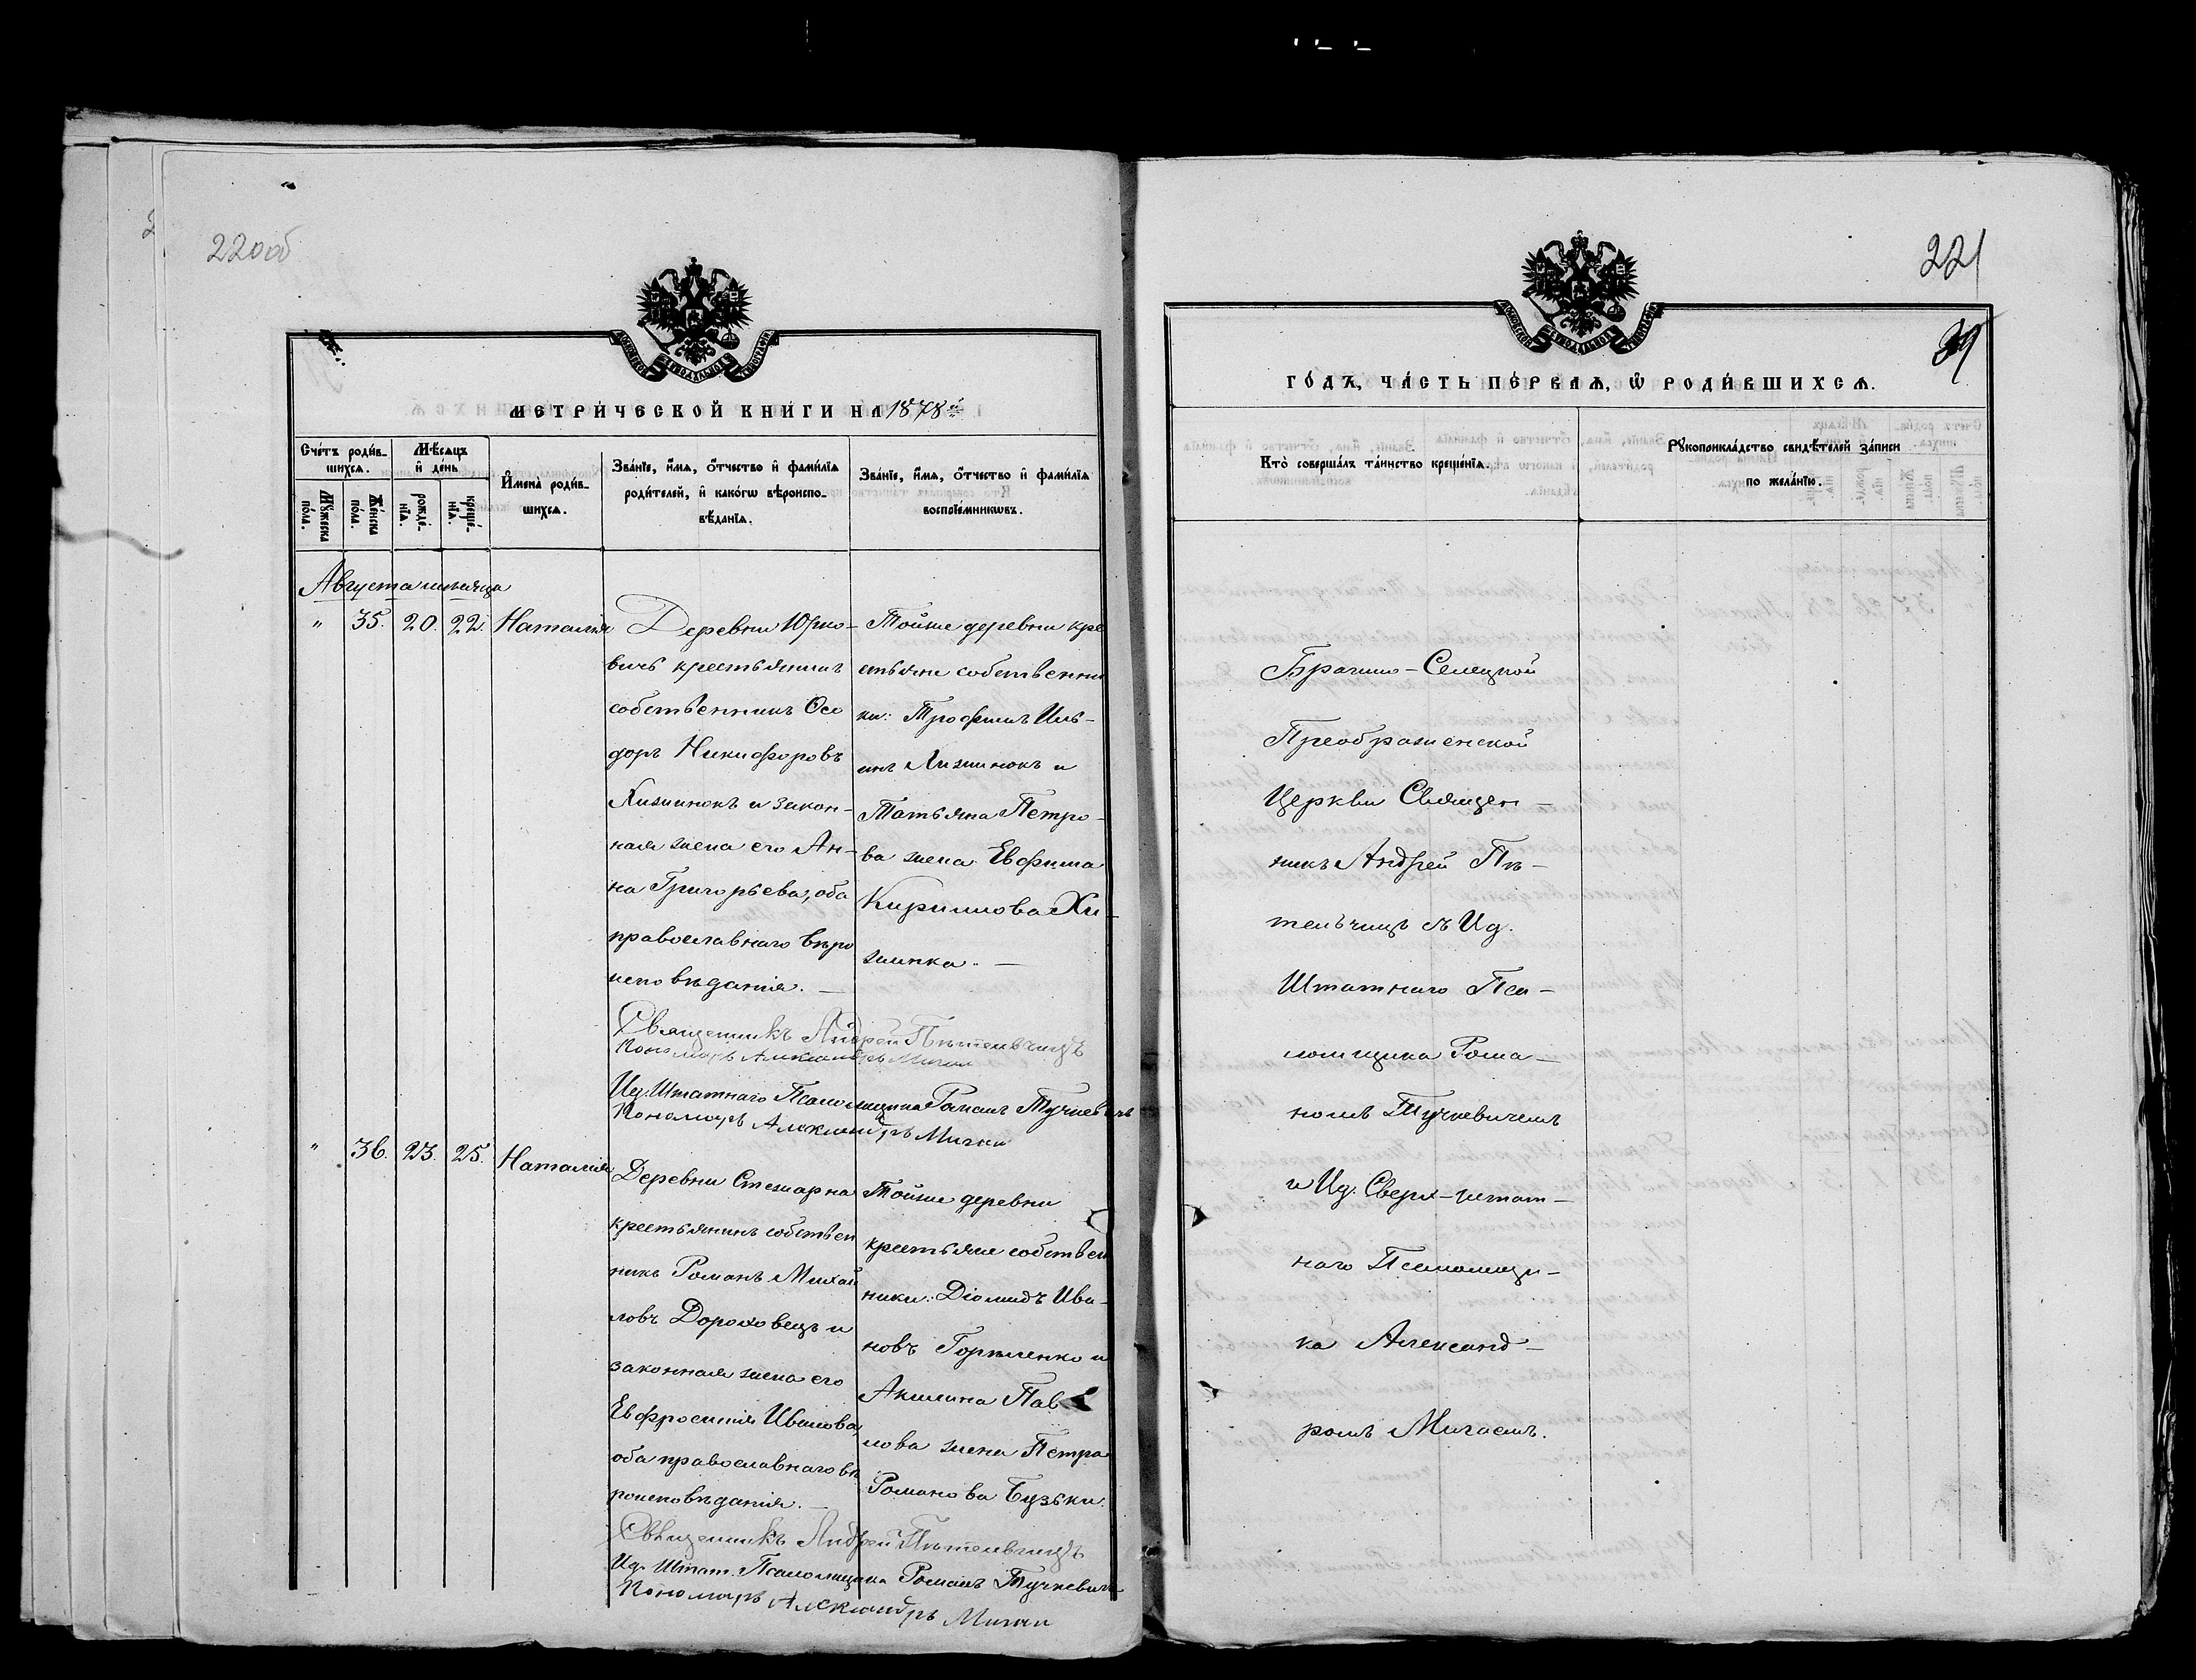 220об
221
МЕТРИ́ЧЕСКОЙ КНИ́ГИ НА 1878й
Сче́тъ роди́в-
шихсѧ.
Мѣ́сяцъ
и҆ де́нь
Мꙋ́жеска
по́ла.
Же́нска
по́ла.
рожде́-
нїѧ.
креще́-
нїѧ.
И҆мена̀ роди́в-
шихсѧ.
Зва́нїе, и҆́мѧ, о҆́тчество и҆ фами́лїѧ
роди́телей, и҆ како́гѡ вѣроиспо-
вѣ́данїѧ.
Зва́нїе, и҆́мѧ, о҆́тчество и҆ фами́лїѧ
воспрїе́мникѡвъ.
Августа мѣсяца
" 35. 20. 22. Наталія
Деревни Юрко-
вичъ крестьянинъ
собственникъ Оси
доръ Никифоровъ
Хижинокъ и закон-
ная жена его Ан-
на Григорьева, оба
православнаго вѣро
исповѣданія. —
Тойже деревни кре
стьяне собственни
ки: Трофимъ Иль-
инъ Хижинокъ и
Татьяна Петро-
ва жена Евфима
Кириллова Хи-
жинка. —
Священникъ Андрей Пѣтельчицъ
Пономарь Александръ Мигай
Ид. Штатнаго Псаломщика Романъ Тучкевичъ
Пономарь Александръ Мигай
" 36. 23. 25. Наталія
Деревни Стежарна
крестьянинъ собствен
никъ Романъ Михай
ловъ Дороховецъ и
законная жена его
Евфросинія Иванова,
оба православнаго вѣ
роисповѣданія. —
Тойже деревни
крестьяне собствен
ники: Діомидъ Ива-
новъ Горѣленко и
Акилина Пав
лова жена Петра
Романова Бузьки.
Священникъ Андрей Пѣтельчицъ
Ид. Штат. Псаломщика Романъ Тучкевичъ
Пономарь Александръ Мигай
ГО́ДЪ, ЧА́СТЬ ПЕ́РВАѦ, Ѡ҆ РОДИ́ВШИХСѦ.
Кто̀ соверша́лъ та́инство креще́нїѧ.
Рꙋкоприкла́дство свидѣ́телей за́писи
по жела́нїю.
Брагино-Селецкой
Преображенской
Церкви Священ-
никъ Андрей Пѣ-
тельчицъ съ Ид.
Штатнаго Пса-
ломщика Рома-
номъ Тучкевичемъ
и Ид. Сверх-штат-
наго Псаломщи-
ка Александ-
ромъ Мигаемъ.